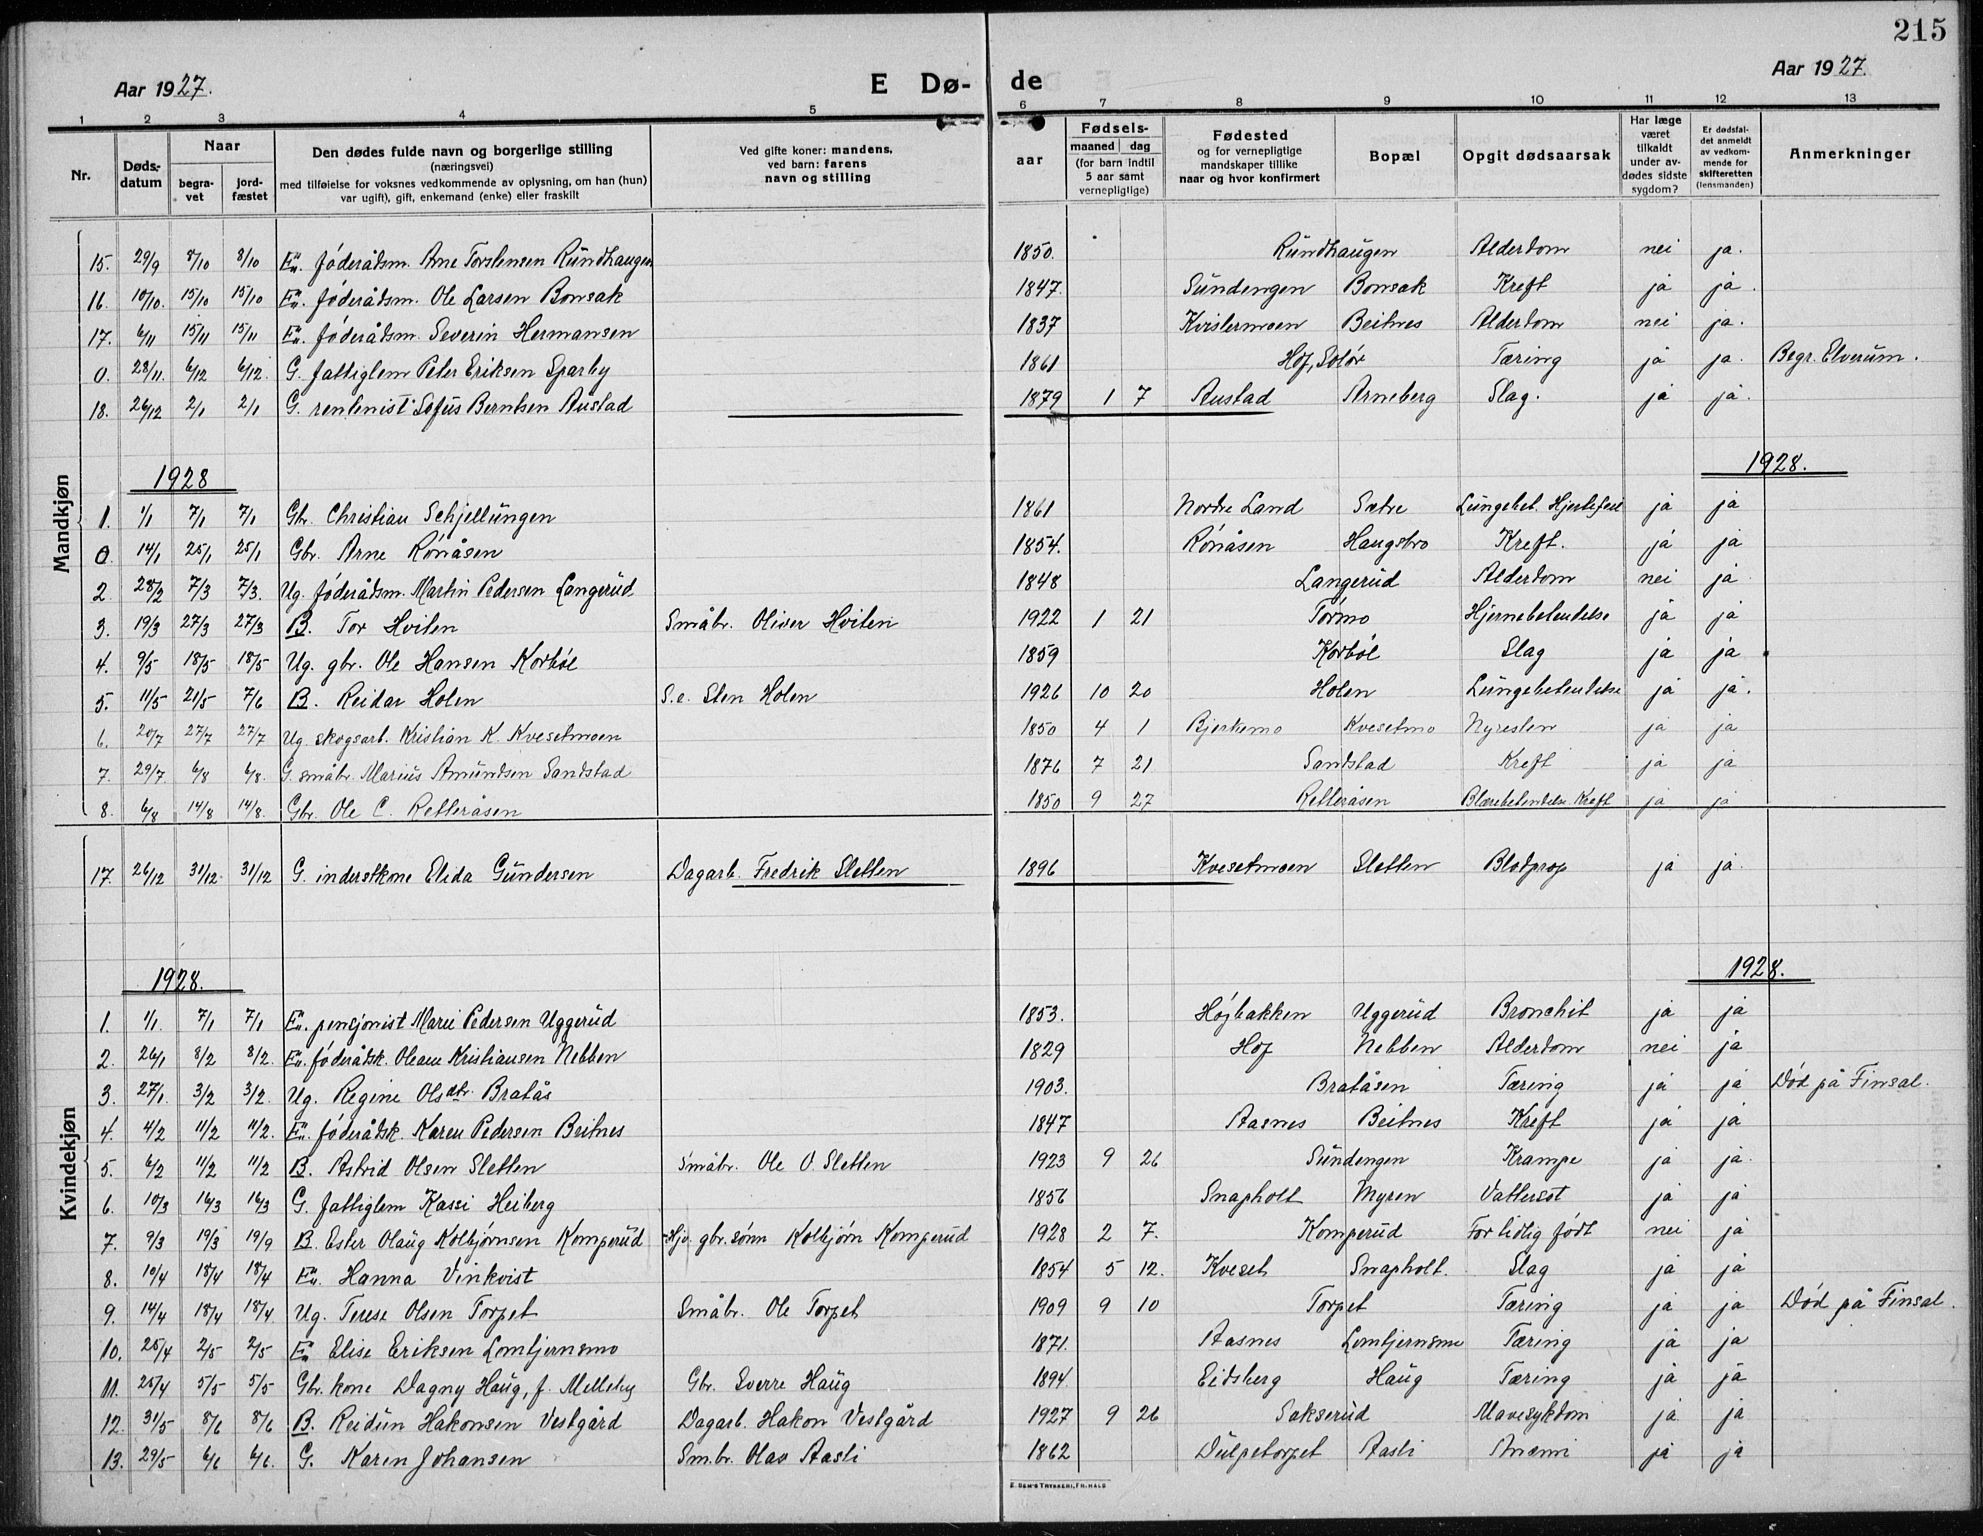 215
Aar 1927. E Dø- de Aar 1927.
1 2 3 4 5 6 7 8 9 10 11 12 13
Nr. Døds-datum Naar begra-vet jord-fæstet Den dødes fulde navn og borgerlige stilling (næringsvei) med tilføielse for voksnes vedkommende av oplysning, om han (hun) var ugift), gift, enkemand (enke) eller fraskilt Ved gifte koner: mandens, ved barn: farens navn og stilling aar Fødsels- maaned dag (for barn indtil 5 aar samt vernepligtige) Fødested og for vernepligtige mandskaper tillike naar og hvor konfirmert Bopæl Opgit dødsaarsak Har læge været tilkaldt under av-dødes sidste sygdom? Er dødsfal-det anmeldt av vedkom-mende for skifteretten (lensmanden) Anmerkninger
Mandkjøn
15. 29/9 8/10 8/10 Em. føderådsm. Arne Torstensen Rundhaugen 1850. Rundhaugen Alderdom nei ja.
16. 10/10. 15/10 15/10 Em. føderådsm. Ole Larsen Bonsak 1847. Sundengen Bonsak Kreft ja ja.
17. 6/11 15/11 15/11 Em. føderådsm. Severin Hermansen 1837 Kvistermoen Beitnes Alderdom nei ja.
0. 28/11. 6/12 6/12. G. fattiglem Peter Eriksen Sparby 1861 Hof, Solør Tæring ja ja. Begr. Elverum.
18. 26/12 2/1 2/1 G. rentenist Sofus Berntsen Austad 1879 1 7 Austad Arneberg Slag. ja ja.
1928 1928.
1. 1/1 7/1 7/1 Gbr. Christian Schjellungen 1861 Nordre Land Sætre Lungebet. Hjertefeil ja ja
0. 14/1 25/1 25/1 Gbr. Arne Rønåsen 1854. Rønåsen Haugsbro Kreft. ja ja
2. 28/2 7/3 7/3. Ug. føderådsm. Martin Pedersen Langerud 1848 Langerud Alderdom nei ja.
3. 19/3 27/3 27/3 B. Tor Hviten Småbr. Oliver Hviten 1922 1 21 Tørmo Hjernebetendelse ja ja
4. 9/5 18/5 18/5 Ug. gbr. Ole Hansen Korbøl 1859 Korbøl Slag ja ja
5. 11/5 21/5 7/6 B. Reidar Holen S.e. Sten Holen 1926 10 20 Holen Lungebetendelse ja ja.
6. 20/7 27/7 27/7 Ug. skogsarb. Kristian K. Kvesetmoen 1850 4 1 Bjerkemo Kvesetmo Nyresten ja ja
7. 29/7 6/8 6/8. G. småbr. Marius Amundsen Sandstad 1876 7 21 Sandstad Kreft ja ja
8. 6/8 14/8 14/8. Gbr. Ole C. Retteråsen 1850 9 27 Retteråsen Blærebetendelse Kreft ja ja
Kvindekjøn
17. 26/12 31/12. 31/12 G. inderstkone Elida Gundersen Dagarb. Fredrik Sletten 1896 Kvesetmoen Sletten Blodprop ja ja.
1928. 1928.
1. 1/1. 7/1 7/1 En. pensjonist Marie Pedersen Uggerud 1853. Højbakken Uggerud Bronchit ja ja
2. 26/1 8/2 8/2. En. føderådsk. Oleane Kristiansen Nebben 1829 Hof Nebben Alderdom nei ja
3. 27/1. 3/2 3/2. Ug. Regine Olsdtr. Bratås 1903. Bratåsen Tæring ja ja Død på Finsal.
4. 4/2 11/2 11/2. En. føderådsk. Karen Pedersen Beitnes 1847 Aasnes Beitnes Kreft ja ja
5. 6/2 11/2 11/2 B. Astrid Olsen Sletten Småbr. Ole O. Sletten 1923 9 26 Sundengen Krampe ja ja.
6. 10/3 16/3 16/3 G. fattiglem Kassi Heiberg 1856 Snapholt Myren Vattersot ja ja
7. 9/3 19/3 19/9 B. Ester Olaug Kolbjørnsen Komperud Hjv. gbr.sønn Kolbjørn Komperud 1928 2 7. Komperud For tidlig født nei ja
8. 10/4 18/4 18/4 En. Hanna Vinkvist 1854 5 12. Kveset Snapholt. Slag ja ja
9. 14/4 18/4 18/4 Ug. Terese Olsen Torpet Småbr. Ole Torpet 1909 9 10 Torpet Tæring ja ja Død på Finsal.
10. 25/4 2/5 2/5 En. Elise Eriksen Lomtjernsmo 1871. Aasnes Lomtjernsmo Tæring ja ja
11. 25/4 5/5 5/5 Gbr. kone Dagny Haug, f. Melleby Gbr. Sverre Haug 1894 Eidsberg Haug Tæring ja ja
12. 31/5 8/6 8/6 B. Reidun Hakonsen Vestgård Dagarb. Hakon Vestgård 1927 9 26 Sakserud Mavesykdom ja ja
13. 29/5 6/6 6/6. G. Karen Johansen Sm.br. Olav Aasli 1862 Dulpetorpet Aasli Anæmi ja ja
E. SEM'S TRYKKERI, FR.HALD